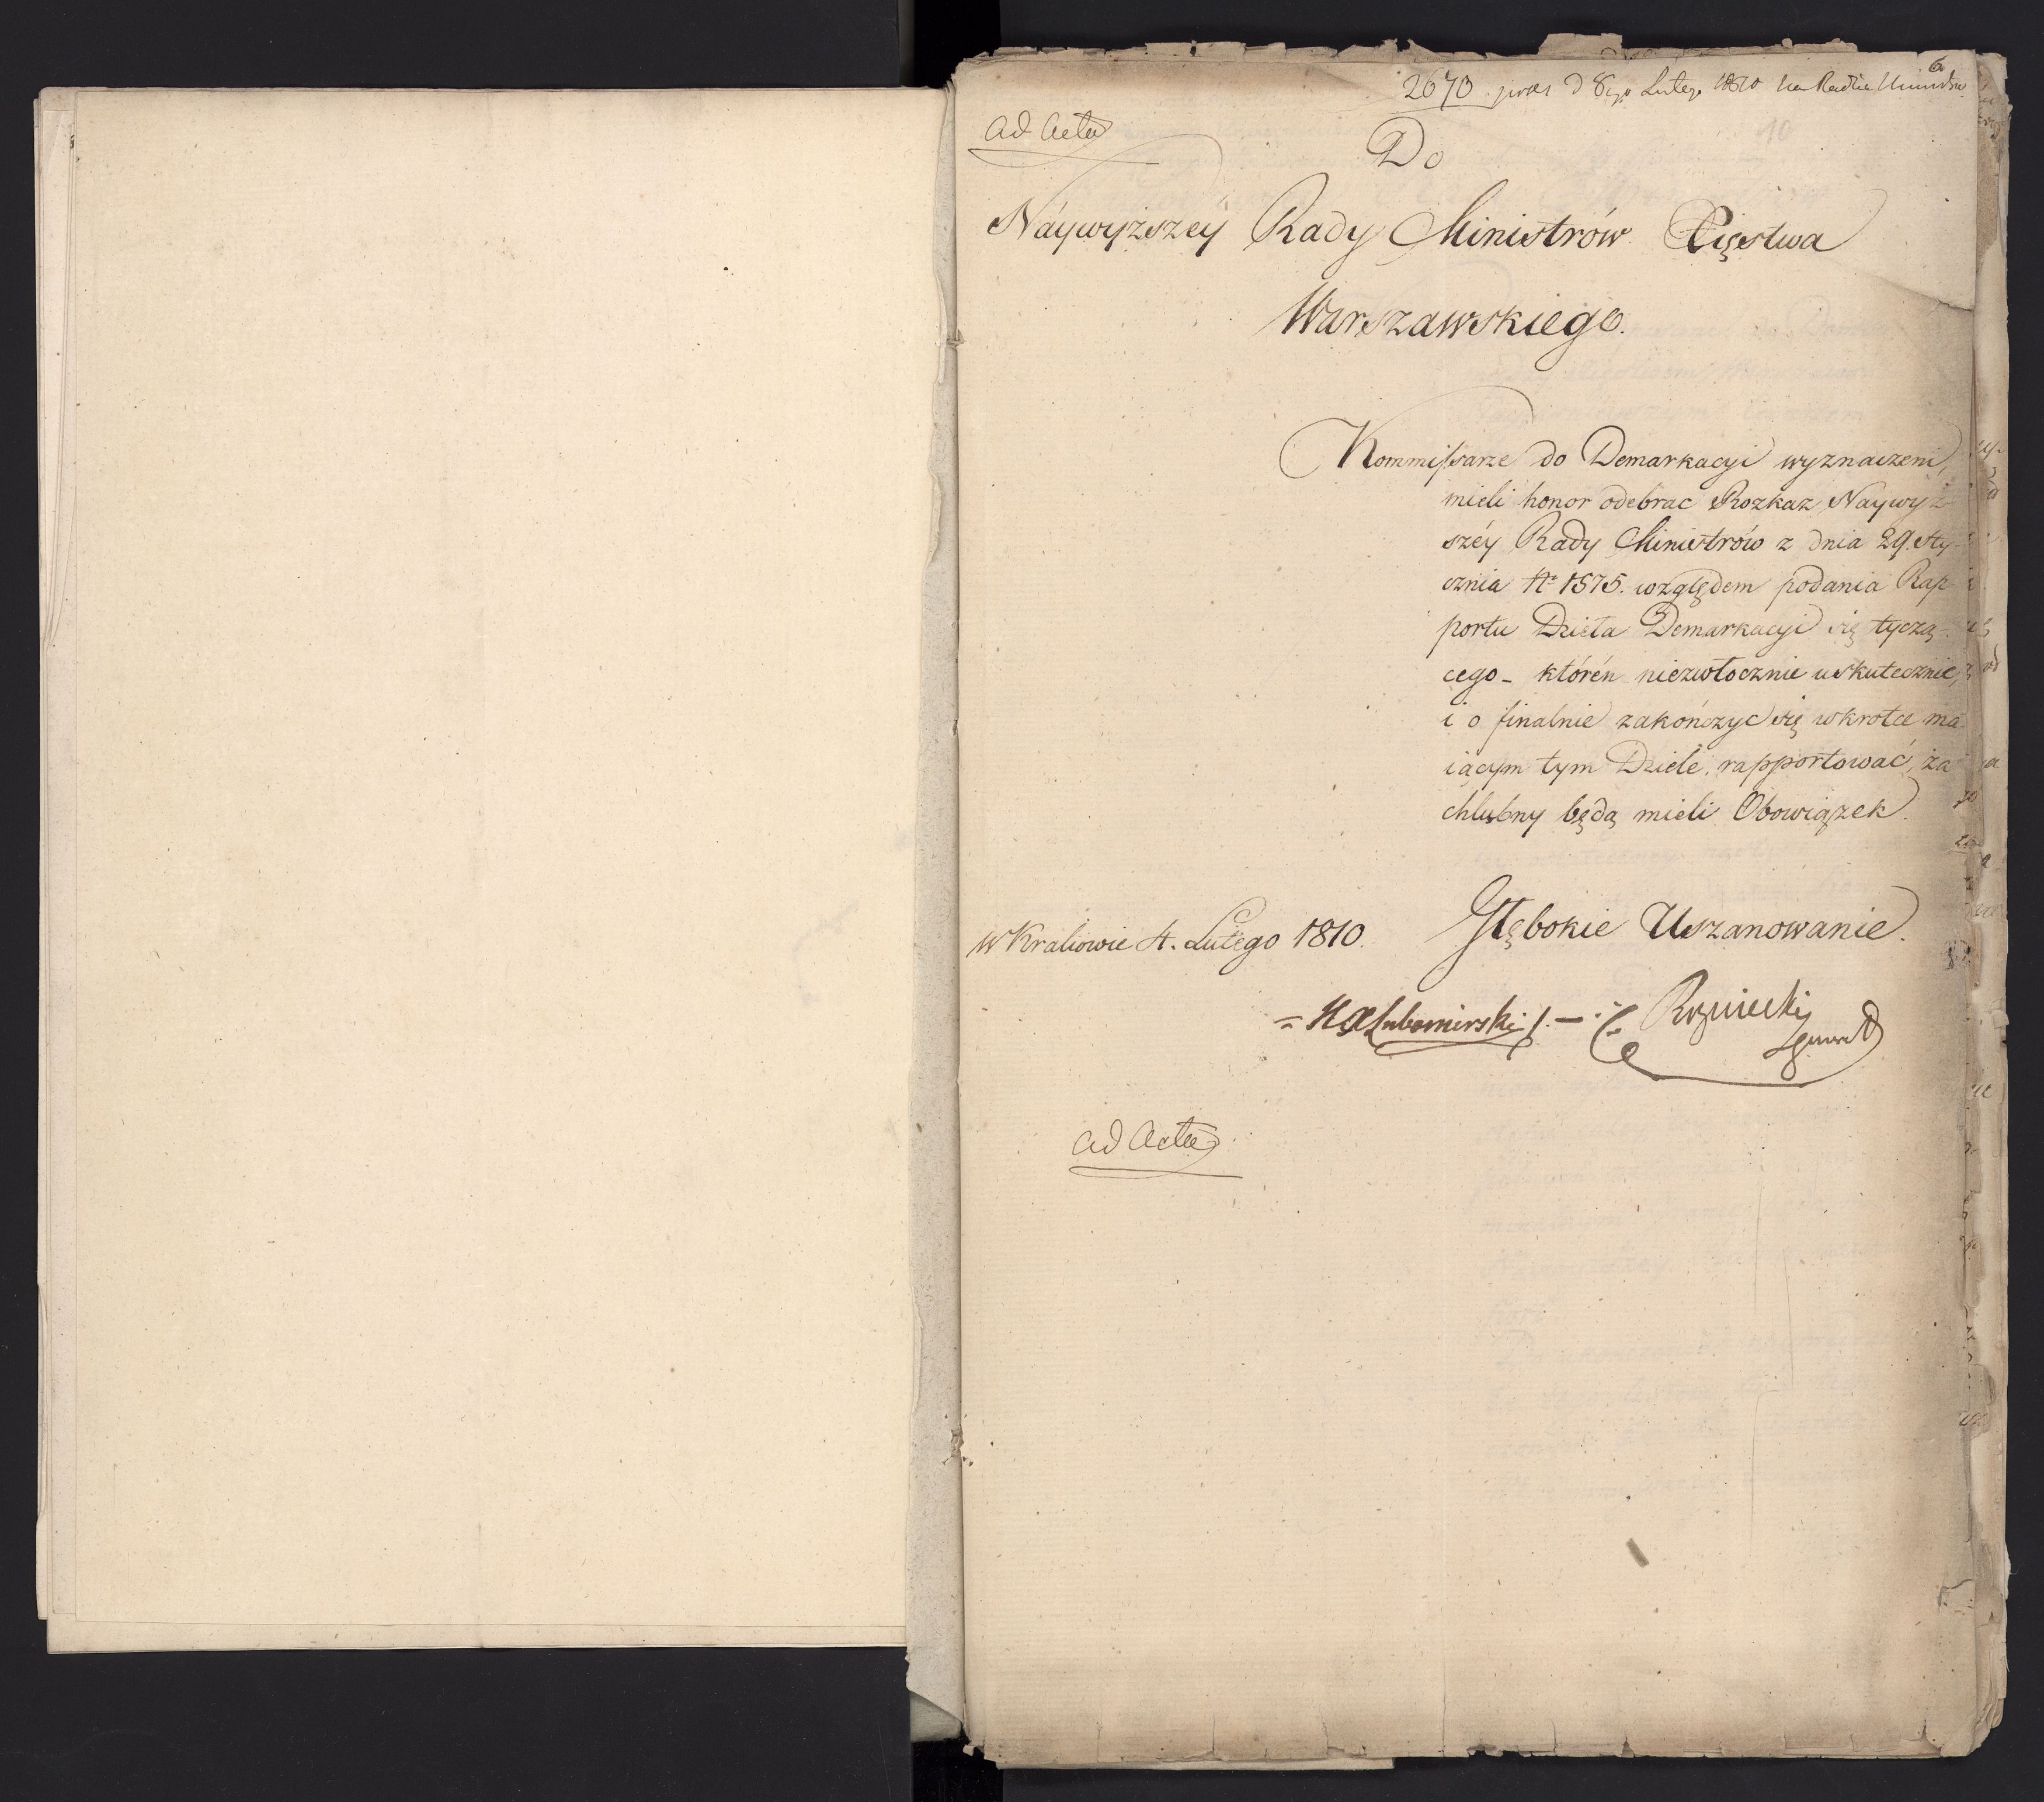 6
2673 pres d 8go Lutego 1810 na Radzie
10
ad Acta
Do
Náywyższéy Rady Ministrów Xięstwa
Warszawskiego.
Kommissarze do Demarkacyi wyznaczeni,
mieli honor odebrac Rozkaz Naywyż
széy Rady Ministrów z dnia 29. Sty-
cznia No 1575. względem podania Rap-
portu Dzieła Demarkacyi się tyczą-
cego - którén niezwłocznie uskutecznić,
i o finalnie zakończyc się wkrotce ma-
iącym tym Dziele rapportować, za
chlubny będą mieli Obowiązek.
Głębokie Uszanowanie.
w Krakowie 4. Lutego 1810.
Lubomirski
Rożniecki
ad Acta